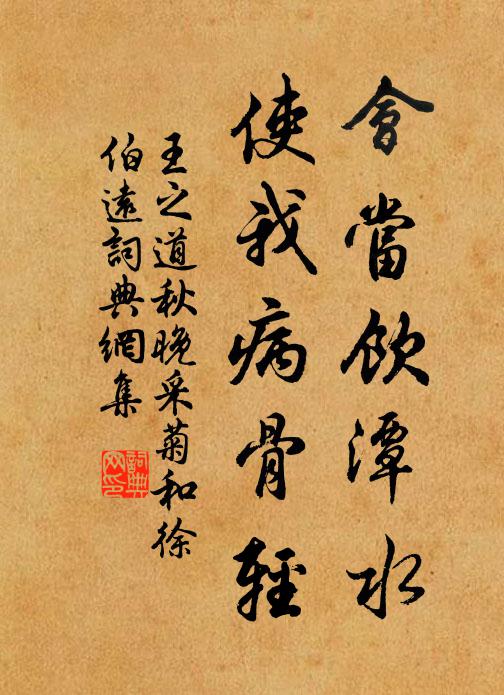 會當飲潭水
使我病骨輕
王之道秋晚采菊和徐
伯遠詞典網集
詞典
网印